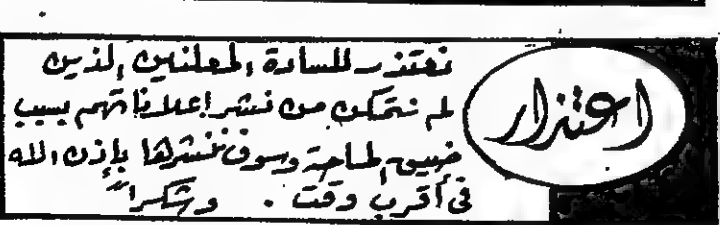 اعتذار
نعتذر للسادة المعلنين الذين
لم نتمكن من نشر إعلاناتهم بسبب
ضيق المساحة وسوف ننشرها بإذن الله
فى أقرب وقت . وشكراً